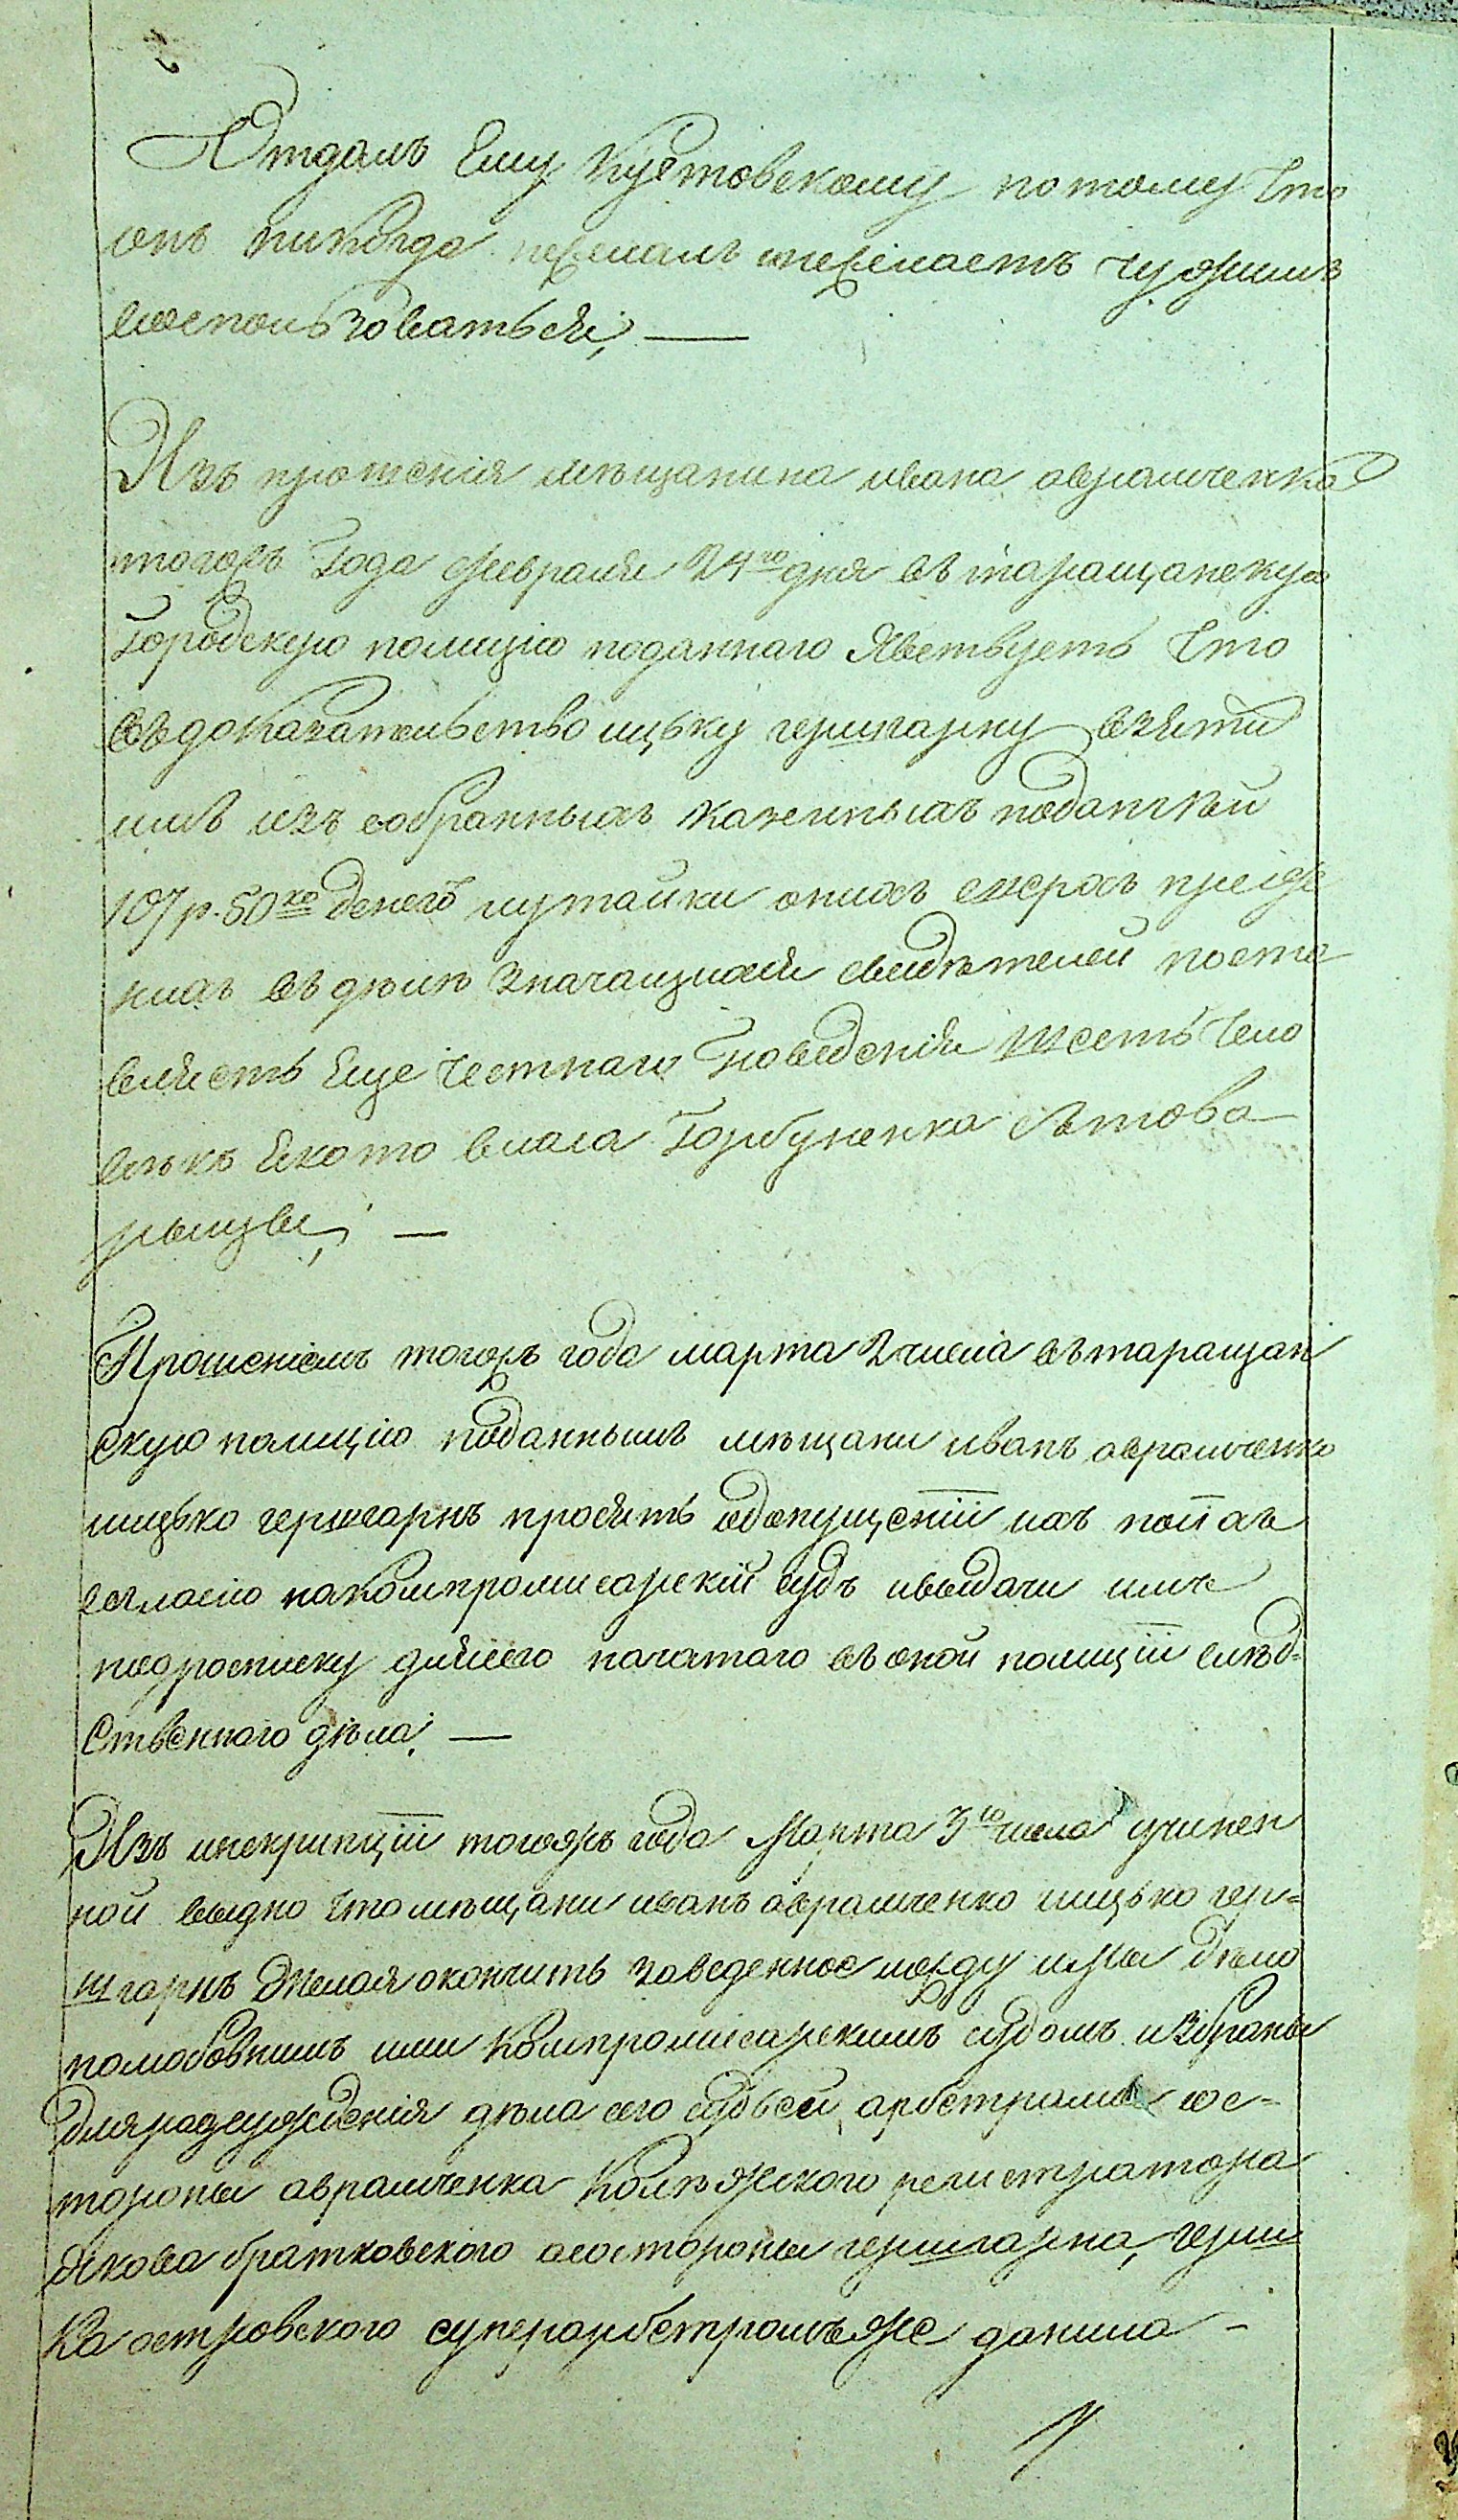 Отдалъ Ему Кустовскому потому Что
онъ никогда нежелалъ инежелаетъ чужимъ
воспользоваться, —
Изъ прошенія мѣщанина ивана аврамченка
тогожъ Года февраля 24го дня въ таращанскую
Городскую полицію поданнаго Явствуетъ Что
въ доказательство ицьку гершгарну взяти
имъ изъ собранныхъ казенныхъ податкей
107 р. 50 ко денегъ иутайки онихъ сверхъ преж
нихъ въ дѣлѣ значащихся свидѣтелей поста
вляетъ Еще Честнаго Поведенія шесть Чело
вѣкъ Якото власа Горбуненка сътова
рищы, —
Прошеніемъ тогожъ года марта 2 числа въ таращан
скую полицію поданнымъ мѣщани иванъ аврамченко
ицько гершгарнъ просятъ одопущеніи ихъ поихъ
согласію накомпромисарскій судъ ивыдачи имъ
подросписку длясего начатаго въ оной полиціи слѣд-
Ственнаго дѣла, —
Изъ инскрипціи тогожъ года Марта 3го числа учинен
ной видно Что мѣщани иванъ аврамченко ицько гер-
шгарнъ Желая окончить заведенное между ими дѣло
полюбовнимъ ими Компромисарскимъ судомъ избраны
для разсужденія дѣла сего судьей арбетрами сос-
тороны аврамченка Колѣжского регистратора
Якова братковского асостороны гершгарна, герш
ка островского суперарбетромъ же данила -